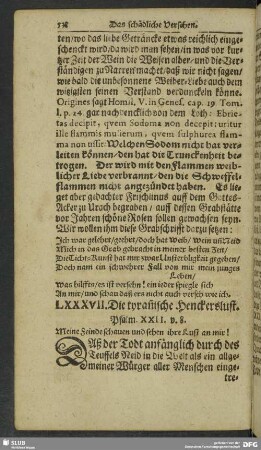 Das schädliche Versehen.
ten/ wo das liebe Geträncke etwas reichlich einge-
schenckt wird/ da wird man sehen/ in was vor kur-
tzer Zeit der Wein die Weisen alber/ und die Ver-
ständigen zu Narren machet/ daß wir nicht sagen/
wie bald die unbesonnene Weiber-Liebe auch dem
witzigsten seinen Verstand verdunckeln könne.
Origines sagt Homil. V. in Genes. cap. 19 Tom.
I. p. 24. gar nachdencklich von dem Loth: Ebrie-
tas decipit, qvem Sodoma non decepit: uritur
ille flammis mulierum, qvem sulphurea flam-
ma non ussit: Welchen Sodom nicht hat ver-
leiten können/ den hat die Trunckenheit be-
trogen. Der wird mit den Flammen weib-
licher Liebe verbrannt/ den die Schweffel-
flammen nicht angezündet haben. Es lie-
get aber gedachter Frischlinus auff dem Gottes-
Acker zu Urach begraben/ auff dessen Grabstäte
vor Jahren schöne Rosen sollen gewachsen seyn.
Wir wollen ihm diese Grabschrifft darzu setzen:
Ich war gelehrt/ geehrt/ doch hat Weib/ Wein und Neid
Mich in das Grab gebracht in meiner besten Zeit/
Die Licht-Kunst hat mir zwar Unsterbligkeit gegeben/
Doch nam ein schwehrer Fall von mir mein junges
Leben/
Was hilffts/ es ist versehn! ein ieder spiegle sich
An mir/ und schau daß ers nicht auch verseh wie ich.
LXXXVII. Die tyrañische Henckerslust.
Psalm. XXII. v. 8.
Meine Feinde schauen und sehen ihre Lust an mir!
Daß der Todt anfänglich durch des
Teuffels Neid in die Welt als ein allge-
meiner Würger aller Menschen einge-
tre-
SLUB
DFG